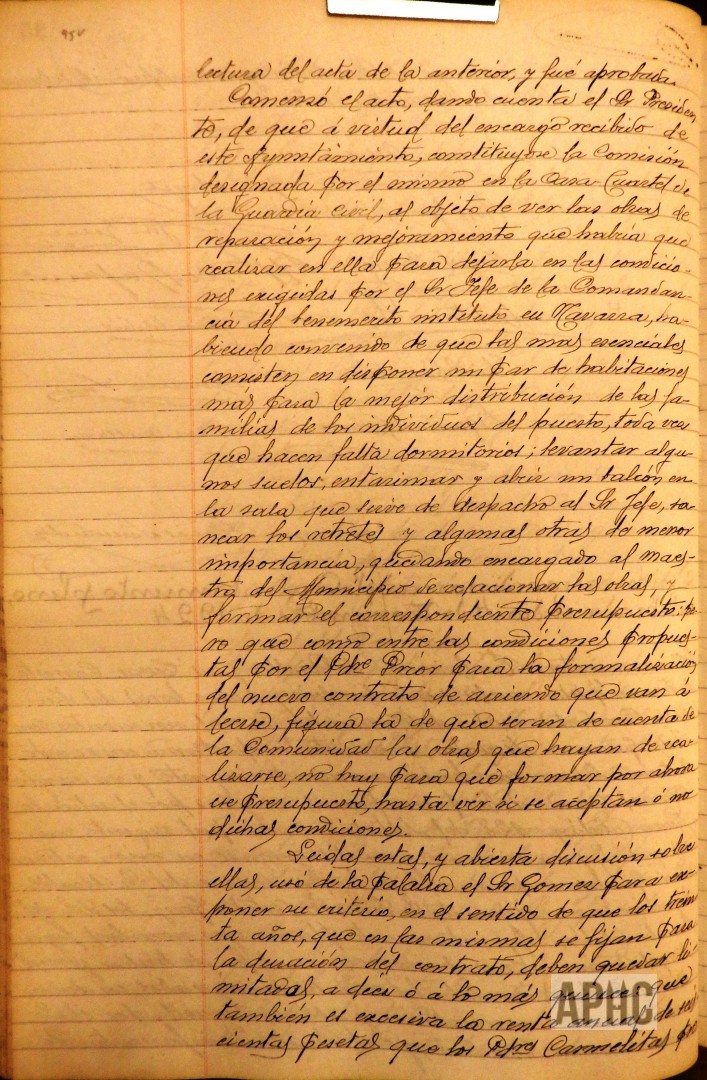 lectura del acta de la anterior, y fué aprobada.
Comenzó el acto, dando cuenta el Sr Presiden
te, de que á virtud del encargo recibido de
este Ayuntamiento, constituyose la Comisión
designada por el mismo en la Casa Cuartel de
la Guardia Civil, al objeto de ver las obras de
reparación y mejoramiento que habría que
realizar en ella para dejarla en las condicio-
nes exigidas por el Sr Jefe de la Comandan-
cia del benemerito instituto en Navarra, ha-
biendo convenido de que las mas esenciales
consisten en disponer un par de habitaciones
más para la mejor distribución de las fa-
milias de los individuos del puesto, toda vez
que hacen falta dormitorios; levantar algu-
nos suelos, entarimar y abrir un balcón en
la sala que sirve de despacho al Sr Jefe, sa-
near los retretes y algunas otras de menor
importancia, quedando encargado al maes-
tro del Municipio de relacionar las obras, y
formar el correspondiente presupuesto: pe-
ro que como entre las condiciones propues-
tas por el Pdre Prior para la formalización
del nuevo contrato de arriendo que van á
leerse, figura la de que seran de cuenta de
la Comunidad las obras que hayan de rea-
lizarse, no hay para que formar por ahora
ese presupuesto, hasta ver si se aceptan ó no
dichas condiciones.
Leidas estas, y abierta discusión sobre
ellas, usó de la palabra el Sr Gomez para ex-
poner su criterio, en el sentido de que los trein
ta años, que en las mismas se fijan para
la duración del contrato, deben quedar li-
mitados, a diez ó á lo más quince; que
también es excesiva la renta anual de seis
cientas pesetas que los Pdres Carmelitas
APHC